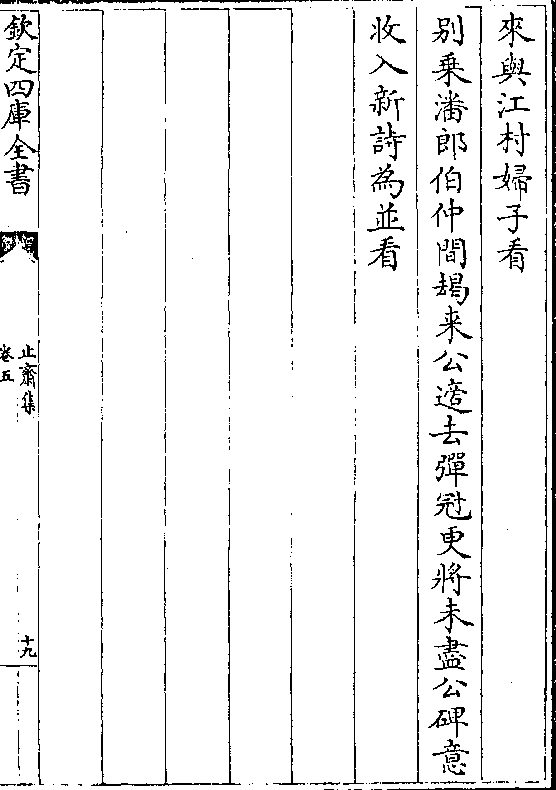 來與江村婦子看
別乗潘郎伯仲間朅来公遮去彈冠更將未盡公碑意
收入新詩為並看
欽定四庫全書
止齋集
卷五
十九